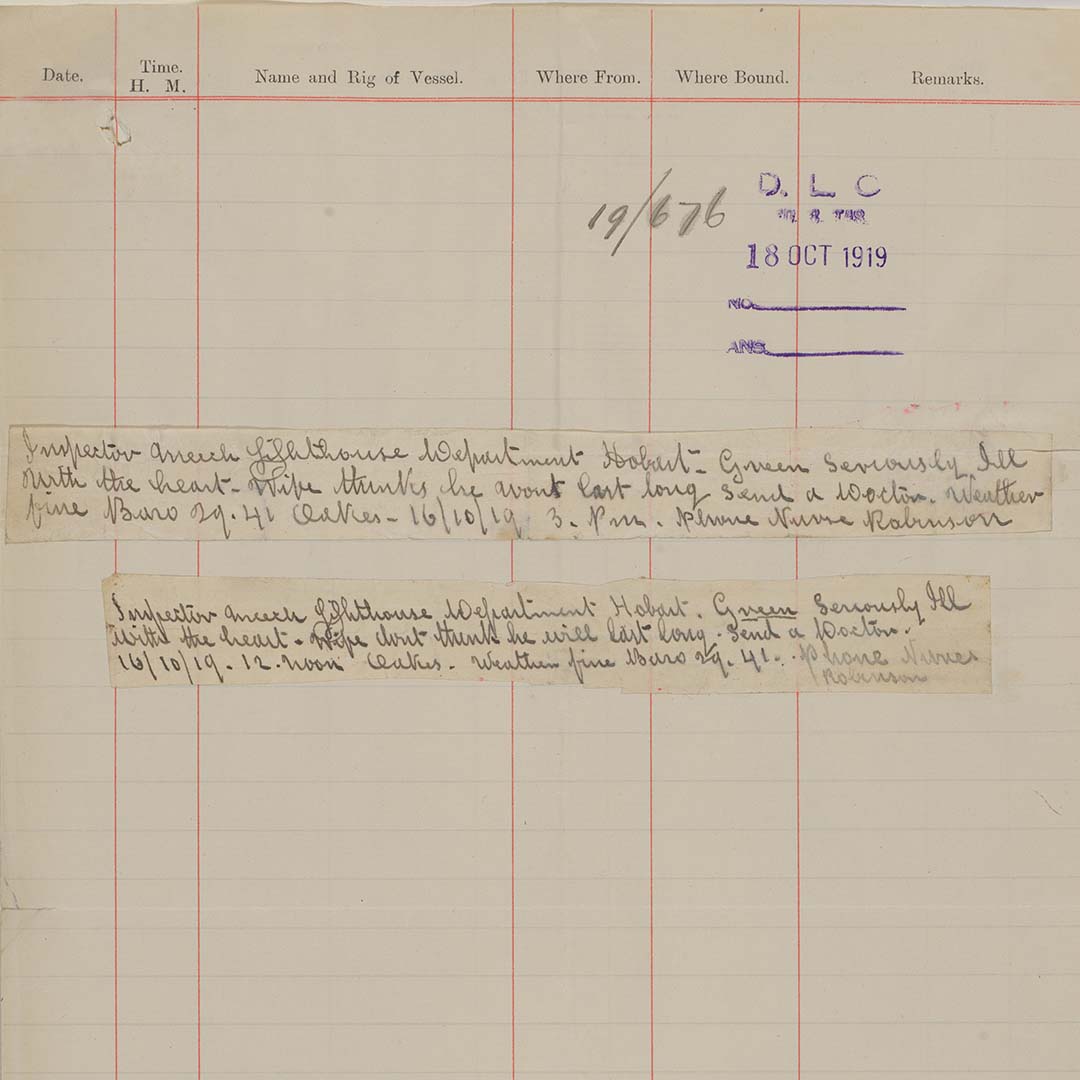 Date. Time. Name and Rig of Vessel. Where From. Where Bound. Remarks.
H. M.
19/676
D. L. C
18 OCT 1919
NO.
ANS.
Inspector Meech Lighthouse Department Hobart - Green Seriously Ill
With the heart - Wife thinks he wont last long Send a Doctor. Weather
fine Baro 29.41 Oakes - 16/10/19 3. Pm. Phone Nurse Robinson
Inspector Meech Lighthouse Department Hobart. Green Seriously Ill
With the heart - Wife dont think he will last long. Send a Doctor.
16/10/19. 12. noon Oakes. Weather fine Baro 29. 41. Phone Nurse
Robinson